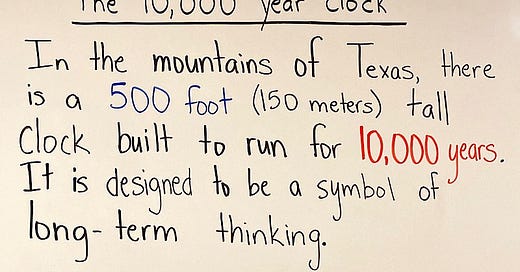 The 10,000 year Clock
In the mountains of Texas, there
is a 500 foot (150 meters) tall
Clock built to run for 10,000 years.
It is designed to be a symbol of
long-term thinking.